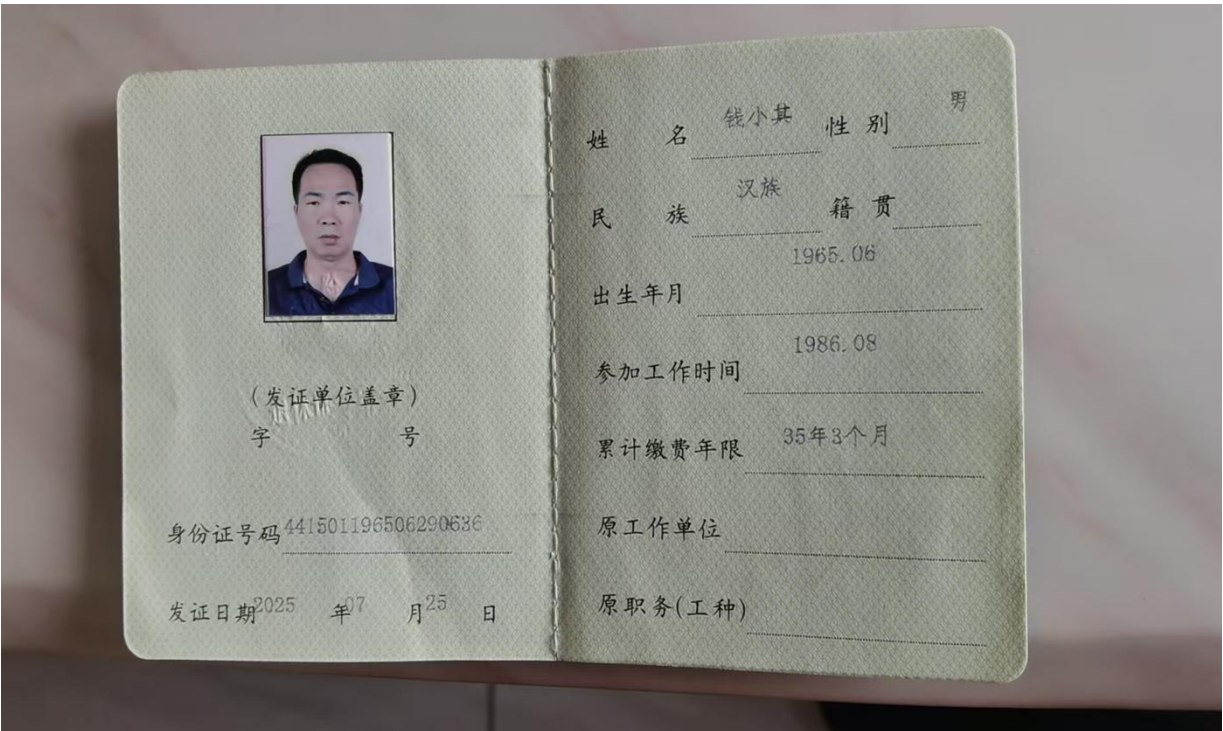 (发证单位盖章)
字 号
身份证号码 441501196506290636
发证日期 2025 年 07 月 25 日
姓 名 钱小其 性 别 男
民 族 汉族 籍 贯
出生年月 1965.06
参加工作时间 1986.08
累计缴费年限 35年3个月
原工作单位
原职务(工种)